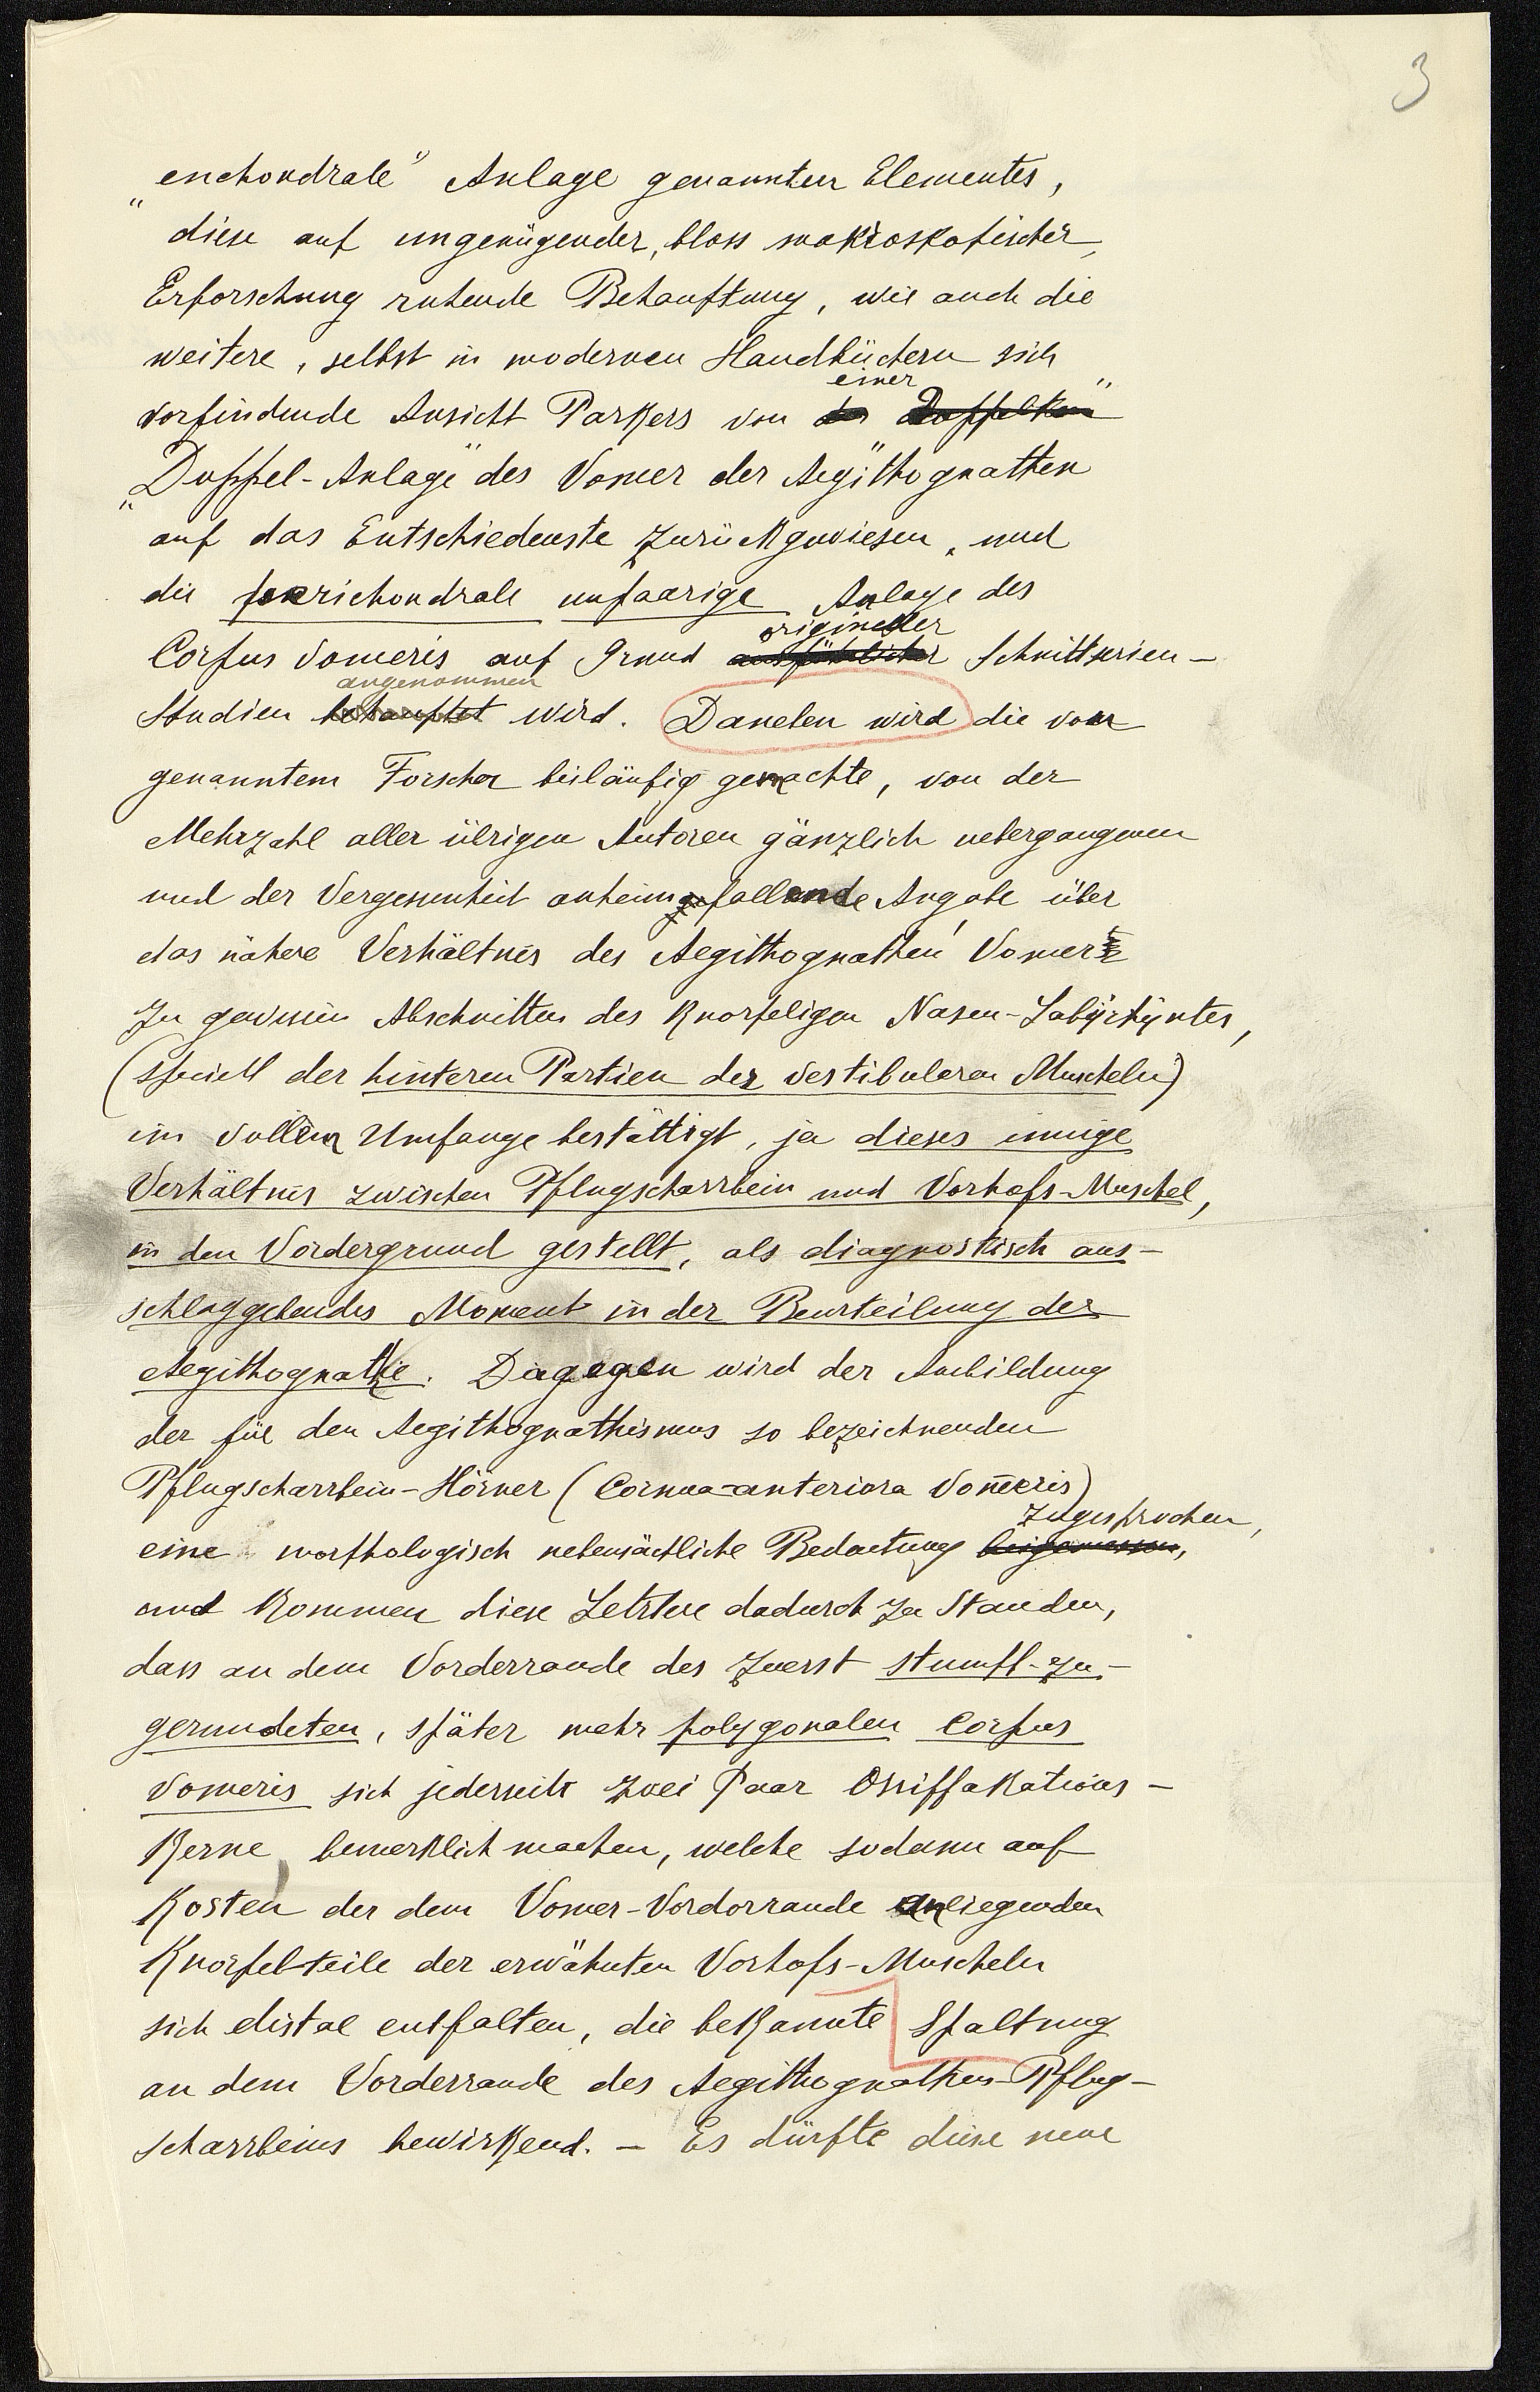 3
„enchondrale" Anlage genannten Elementes,
diese auf ungenügender, bloss makroskopischer,
Erforschung ruhende Behauptung, wie auch die
weitere, selbst in modernen Handbüchern sich
einer
vorfindende Ansicht Parkers von der Doppelten"
„Doppel-Anlage" des Vomer der Aegithognathen
auf das Entschiedenste zurückgewiesen, und
die perichondrale unpaarige Anlage des
origineller
Corpus Vomeris auf Grund ausführlicher Schnittserien-
angenommen
Studien behauptet wird. Daneben wird die vom
genanntem Forscher beiläufig gemachte, von der
Mehrzahl aller übrigen Autoren gänzlich uebergangenen
und der Vergessenheit anheimfallende Angabe über
das nähere Verhältnis des Aegithognathen Vomers
zu gewissen Abschnitten des knorpeligen Nasen-Labyrhyntes,
(speciell der hinteren Partien der vestibularen Muscheln)
im vollem Umfange bestättigt, ja dieses innige
Verhältnis zwischen Pflugscharrbein und Vorhofs-Muschel,
in den Vordergrund gestellt, als diagnostisch aus-
schlaggebendes Moment in der Beurteilung der
Aegithognathie. Dagegen wird der Ausbildung
der für den Aegithognathismus so bezeichnenden
Pflugscharrbein-Hörner (Cornua-anteriora Vomeris)
zugesprochen,
eine morphologisch nebensächliche Bedeutung beigemessen,
und kommen diese Letztere dadurch zu Standen,
dass an dem Vorderrande des zuerst stumpf-zu-
gerundeten, später mehr polygonalen Corpus
Vomeris sich jederseits zwei Paar Ossiffakations-
Kerne bemerklich machen, welche sodann auf
Kosten der dem Vomer-Vorderrande anliegenden
Knorpelteile der erwähnten Vorhofs-Muscheln
sich distal entfalten, die bekannte Spaltung
an dem Vorderrande des Aegithognathen-Pflug-
scharrbeins bewirkend. – Es dürfte diese neue